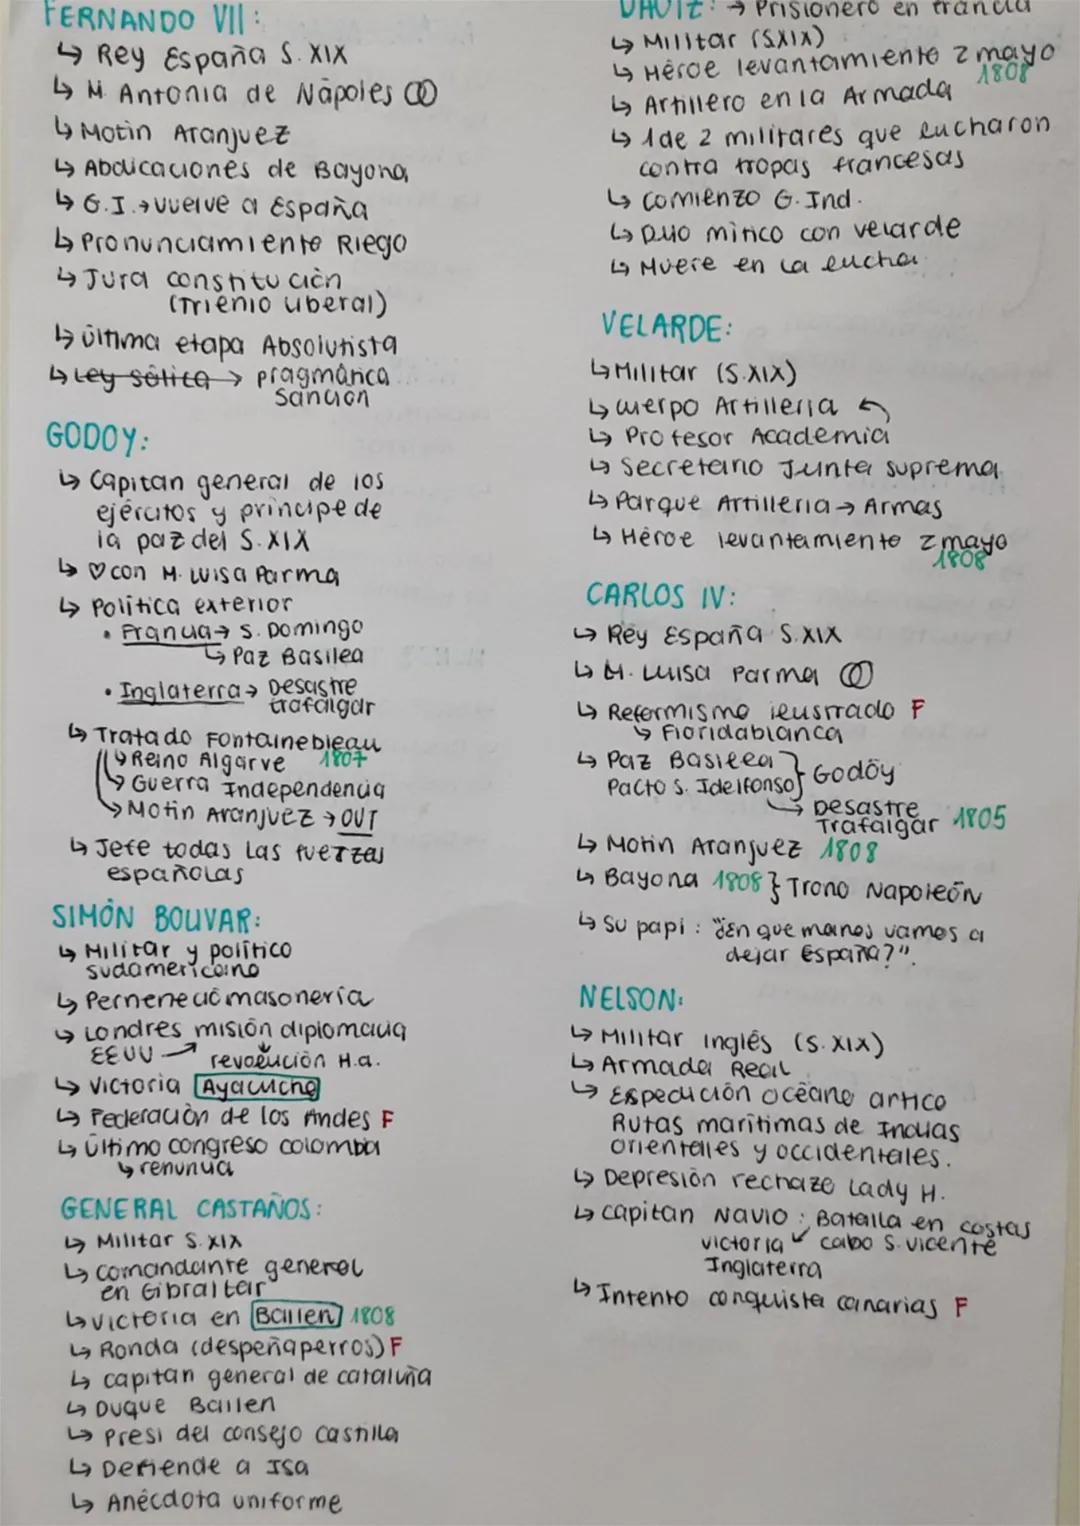 FERNANDO VII:
↳ Rey España S. XIX
↳ M. Antonia de Nápoles
↳ Motín Aranjuez
↳ Abdicaciones de Bayona
↳ G.I. → vuelve a España
↳ Pronunciamiento Riego
↳ Jura constitución
(Trienio liberal)
↳ última etapa Absolutista
↳ Ley sálica → pragmática
sanción
GODOY:
↳ Capitan general de los
ejércitos y príncipe de
la paz del S. XIX
↳ ♡ con M. Luisa Parma
↳ Política exterior
• Francia → S. Domingo
↳ Paz Basilea
• Inglaterra → Desastre
trafalgar
↳ Tratado Fontainebleau
↳ Reino Algarve 1807
↳ Guerra Independencia
↳ Motín Aranjuez → OUT
↳ Jefe todas las fuerzas
españolas
SIMÓN BOLIVAR:
↳ Militar y político
sudamericano
↳ Perneneció masonería
↳ Londres misión diplomacia
EEUU → revolución H.a.
↳ Victoria Ayacucho
↳ Federación de los Andes F
↳ último congreso colombia
↳ renuncia
GENERAL CASTAÑOS:
↳ Militar S. XIX
↳ comandante general
en Gibraltar
↳ victoria en Bailen 1808
↳ Ronda (despeñaperros) F
↳ capitan general de cataluña
↳ Duque Bailen
↳ Presi del consejo Castilla
↳ Defiende a Isa
↳ Anécdota uniforme
DAOIZ: → Prisionero en francia
↳ Militar (S.XIX)
↳ Héroe levantamiento 2 mayo
1808
↳ Artillero en la Armada
↳ 1 de 2 militares que lucharon
contra tropas francesas
↳ comienzo G. Ind.
↳ Duo mítico con velarde
↳ Muere en la lucha
VELARDE:
↳ Militar (S.XIX)
↳ cuerpo Artilleria
↳ Profesor Academia
↳ Secretario Junta suprema
↳ Parque Artilleria → Armas
↳ Héroe levantamiento 2 mayo
1808
CARLOS IV:
↳ Rey España S.XIX
↳ M. Luisa Parma
↳ Reformismo ilustrado F
↳ Floridablanca
↳ Paz Basilea
Pacto S. Idelfonso } Godoy
→ Desastre
Trafalgar 1805
↳ Motín Aranjuez 1808
↳ Bayona 1808 } Trono Napoleón
↳ Su papi: "¿En que manos vamos a
dejar España?".
NELSON:
↳ Militar inglés (S. XIX)
↳ Armada Real
↳ Espedición océano artico
Rutas marítimas de Indias
orientales y occidentales.
↳ Depresión rechazo Lady H.
↳ capitan Navio: Batalla en costas
victoria ↙ cabo S. vicente
Inglaterra
↳ Intento conquista canarias F